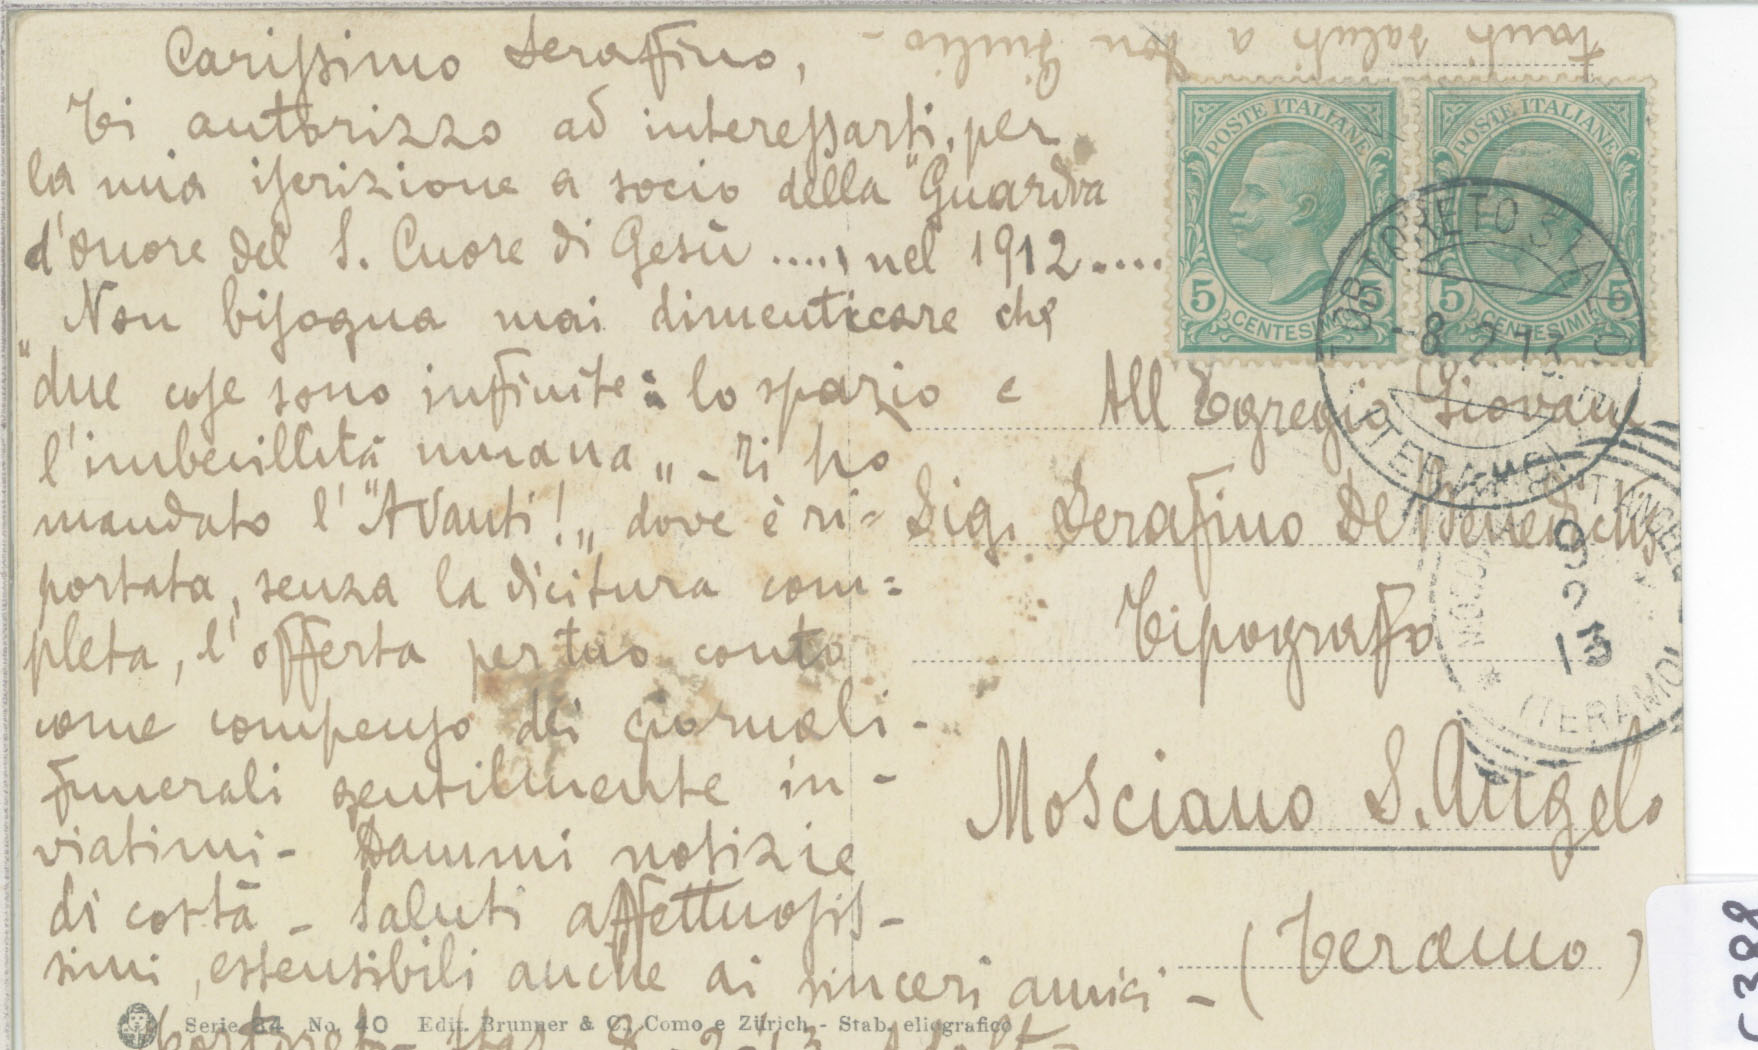 Carissimo Serafino,
Ti autorizzo ad interessarti, per
la mia iscrizione a socio della "Guardia
d'onore del S. Cuore di Gesù ...., nel 1912....
Non bisogna mai dimenticare che
"due cose sono infinite: lo spazio e
l'imbecillità umana" - Ti ho
mandato l'"Avanti!" dove è ri=
portata, senza la dicitura com=
pleta, l'offerta per tuo conto
come compenso dei giornali -
funerali gentilmente in-
viatimi - Dammi notizie
di costà - Saluti affettuosis-
simi, estensibili anche ai sinceri amici -
Tortoreto 8-2-13
tanti saluti a Don Giulio -
POSTE ITALIANE
5 CENTESIMI 5
POSTE ITALIANE
5 CENTESIMI 5
TORTORETO STAZIO
-8.2.13
(TERAMO)
All'Egregio Giovane
Sig. Serafino De Benedictis
Tipografo
Mosciano S. Angelo
(Teramo)
MOSCIANO SANT'ANGELO
9 2 13
(TERAMO)
Serie 34 No. 40 Edit. Brunner & C., Como e Zürich - Stab. eliografico
C388